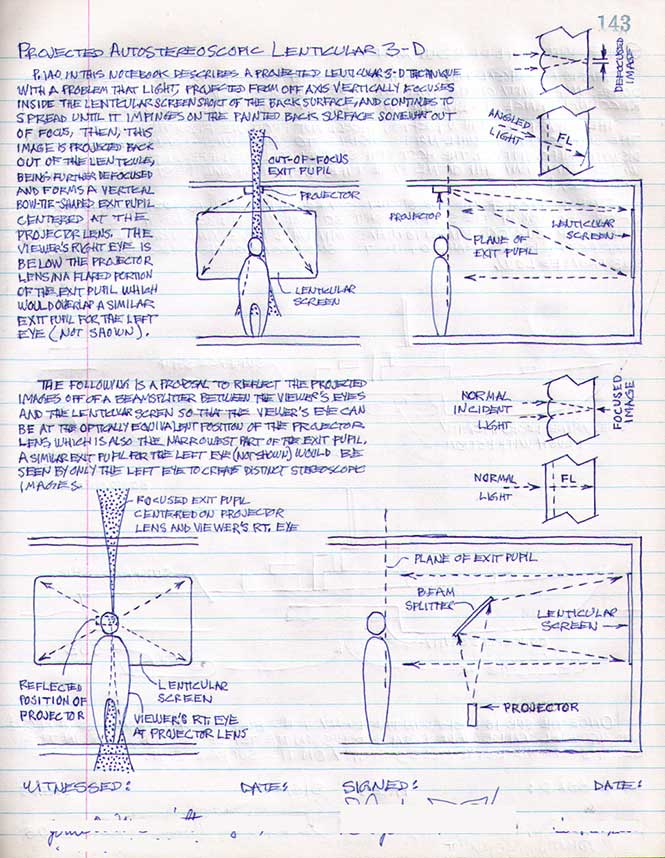 143
PROJECTED AUTOSTEREOSCOPIC LENTICULAR 3-D
P.140 IN THIS NOTEBOOK DESCRIBES A PROJECTED LENTICULAR 3-D TECHNIQUE
WITH A PROBLEM THAT LIGHT, PROJECTED FROM OFF AXIS VERTICALLY FOCUSES
INSIDE THE LENTICULAR SCREEN SHORT OF THE BACK SURFACE, AND CONTINUES TO
SPREAD UNTIL IT IMPINGES ON THE PAINTED BACK SURFACE SOMEWHAT OUT
OF FOCUS, THEN, THIS
IMAGE IS PROJECTED BACK
OUT OF THE LENTICULE,
BEING FURTHER DEFOCUSED
AND FORMS A VERTICAL
BOW-TIE-SHAPED EXIT PUPIL
CENTERED AT THE
PROJECTOR LENS. THE
VIEWER'S RIGHT EYE IS
BELOW THE PROJECTOR
LENS, IN A FLARED PORTION
OF THE EXIT PUPIL WHICH
WOULD OVERLAP A SIMILAR
EXIT PUPIL FOR THE LEFT
EYE (NOT SHOWN).
DEFOCUSED
IMAGE
ANGLED
LIGHT
FL
OUT-OF-FOCUS
EXIT PUPIL
PROJECTOR
LENTICULAR
SCREEN
PROJECTOR
PLANE OF
EXIT PUPIL
LENTICULAR
SCREEN
THE FOLLOWING IS A PROPOSAL TO REFLECT THE PROJECTED
IMAGES OFF OF A BEAMSPLITTER BETWEEN THE VIEWER'S EYES
AND THE LENTICULAR SCREN SO THAT THE VEIWER'S EYE CAN
BE AT THE OPTICALLY EQUIVALENT POSITION OF THE PROJECTOR
LENS, WHICH IS ALSO THE NARROWEST PART OF THE EXIT PUPIL.
A SIMILAR EXIT PUPIL FOR THE LEFT EYE (NOT SHOWN) WOULD BE
SEEN BY ONLY THE LEFT EYE TO CREATE DISTINCT STEREOSCOPIC
IMAGES.
NORMAL
INCIDENT
LIGHT
FOCUSED
IMAGE
NORMAL
LIGHT
FL
FOCUSED EXIT PUPIL
CENTERED ON PROJECTOR
LENS AND VIEWER'S RT. EYE
REFLECTED
POSITION OF
PROJECTOR
LENTICULAR
SCREEN
VIEWER'S RT. EYE
AT PROJECTOR LENS
PLANE OF EXIT PUPIL
BEAM
SPLITTER
LENTICULAR
SCREEN
PROJECTOR
WITNESSED: DATE: SIGNED: DATE: